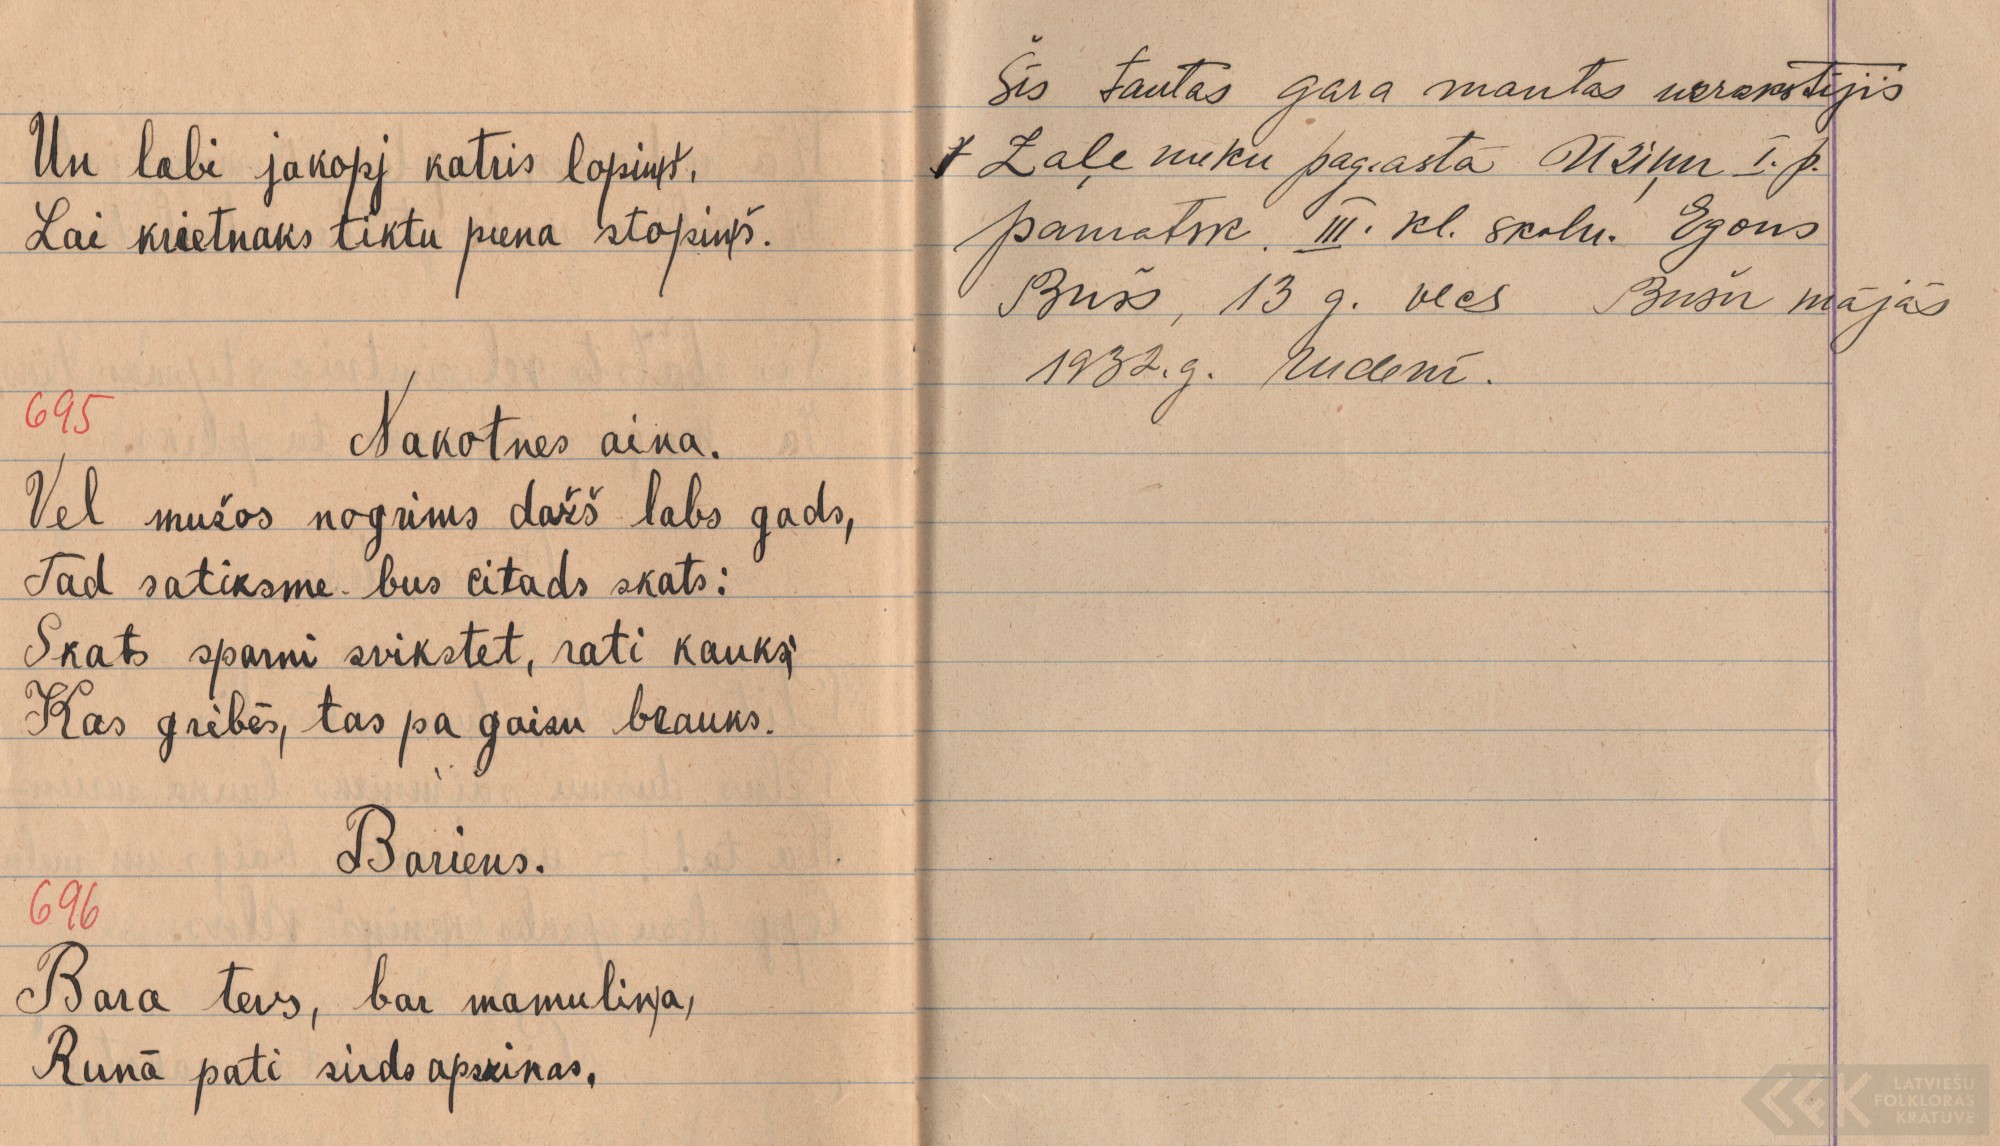 Un labi jakopj katris lopiņš,
Lai krietnaks tiktu piena stopiņš.
695
Nakotnes aina.
Vel mužos nogrims dažš labs gads,
Tad satiksme bus citads skats:
Skats sparni svikstet, rati kauks;
Kas gribēs, tas pa gaisu brauks.
Bariens.
696
Bara tevs, bar mamuliņa,
Runā pati sirds apziņas.
Šīs tautas gara mantas uzrakstījis
Zaļenieku pagastā Ūziņu I. p.
pamatsk. III. kl. skoln. Egons
Bušs, 13 g. vecs Bušu mājās
1932. g. rudenī.
LATVIEŠU
FOLKLORAS
KRĀTUVE